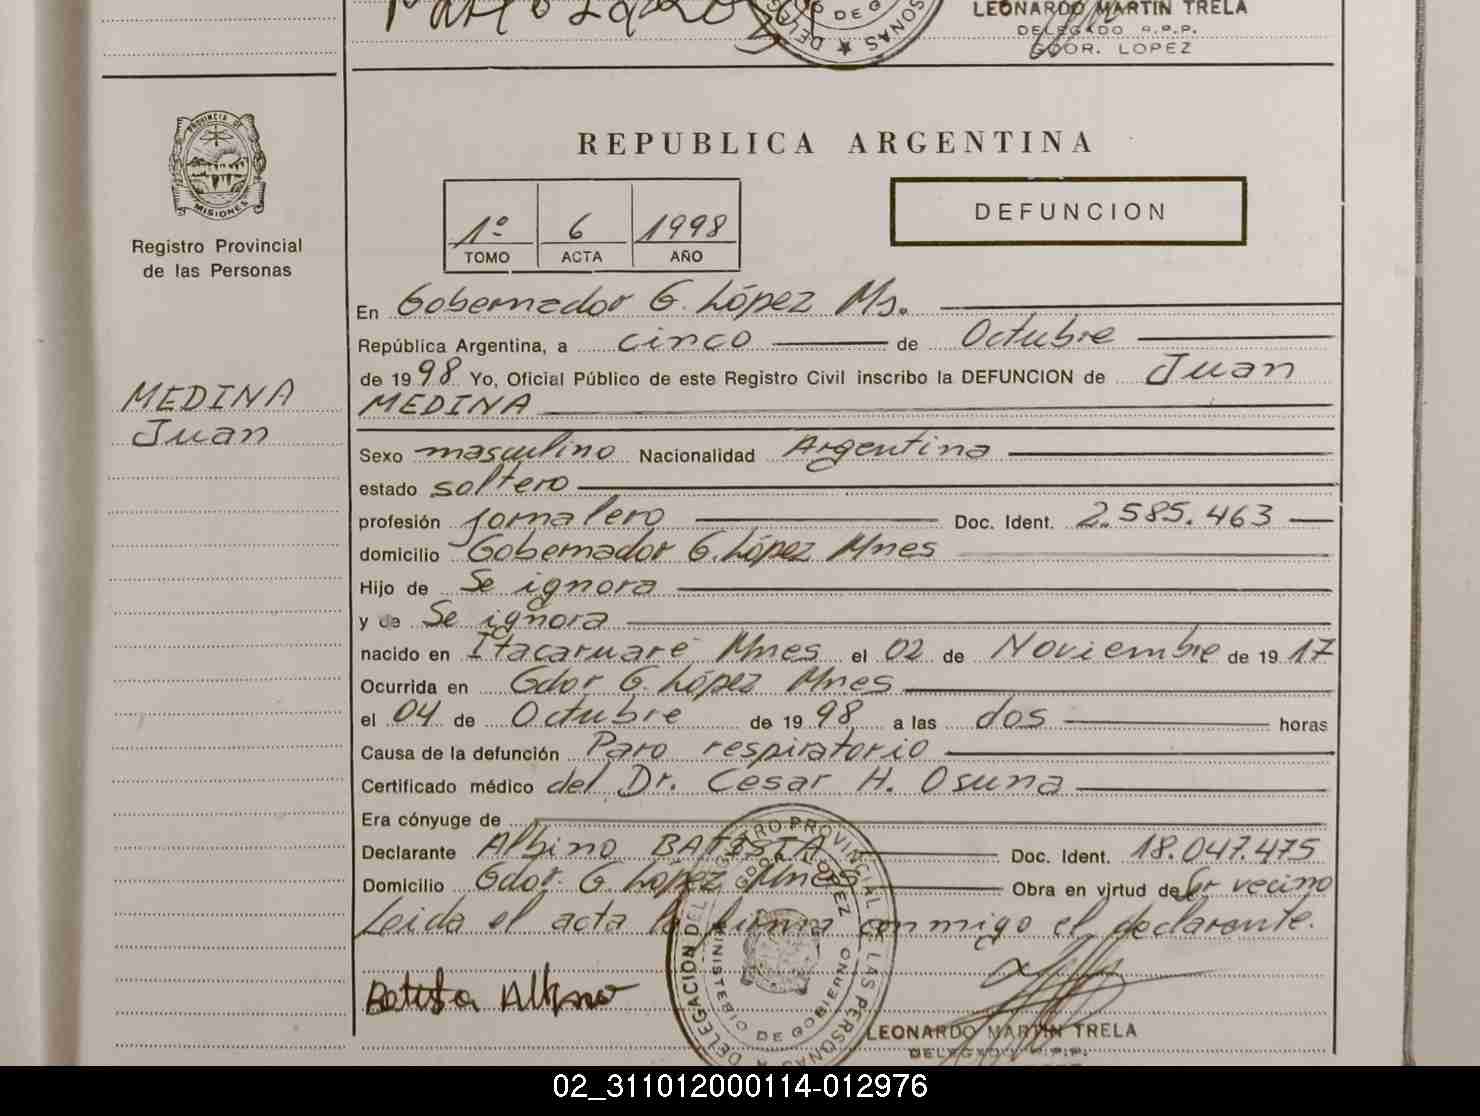 LEONARDO MARTIN TRELA
DELEGADO R.P.P.
GDOR. LOPEZ
PROVINCIA DE
MISIONES
Registro Provincial
de las Personas
MEDINA
Juan
REPUBLICA ARGENTINA
1º 6 1998
TOMO ACTA AÑO
DEFUNCION
En Gobernador G. López Ms.
República Argentina, a cinco de Octubre
de 1998 Yo, Oficial Público de este Registro Civil inscribo la DEFUNCION de Juan
MEDINA
Sexo masculino Nacionalidad Argentina
estado soltero
profesión jornalero Doc. Ident. 2.585.463
domicilio Gobernador G. López Mnes
Hijo de Se ignora
y de Se ignora
nacido en Itacaruaré Mnes el 02 de Noviembre de 1917
Ocurrida en Gdor G. López Mnes
el 04 de Octubre de 1998 a las dos horas
Causa de la defunción Paro respiratorio
Certificado médico del Dr. Cesar H. Osuna
Era cónyuge de
Declarante Albino BATISTA Doc. Ident. 18.047.475
Domicilio Gdor. G. López Mnes Obra en virtud de Ser vecino
Leida el acta la firma conmigo el declarante.
Batista Albino
DELEGACION DEL REGISTRO PROVINCIAL DE LAS PERSONAS
GDOR. LOPEZ
MINISTERIO DE GOBIERNO
LEONARDO MARTIN TRELA
DELEGADO R.P.P.
02_311012000114-012976